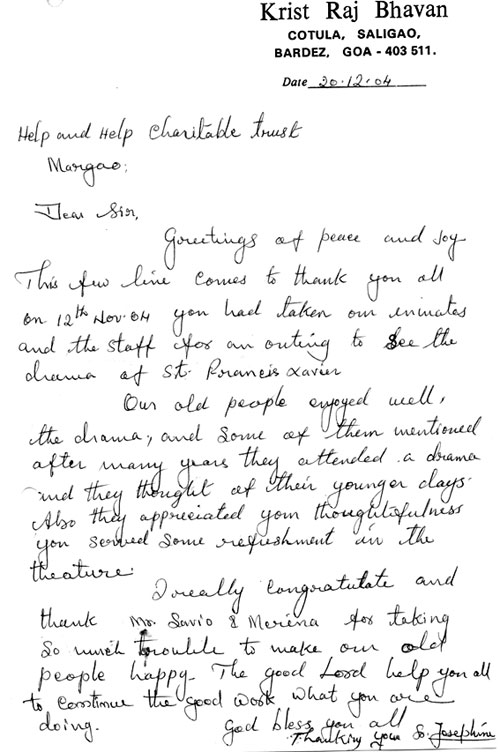 Krist Raj Bhavan
COTULA, SALIGAO,
BARDEZ, GOA - 403 511.
Date 20.12.04
Help and Help Charitable trust
Margao;
Dear Sir,
Greetings of peace and Joy
This few line comes to thank you all
on 12th Nov. 04 you had taken our inmates
and the staff for an outing to see the
drama of St. Francis Xavier
Our old people enjoyed well,
the drama, and some of them mentioned
after many years they attended a drama
and they thought of their younger days.
Also they appreciated your thoughtfulness
you served some refreshment in the
theature.
I really congratulate and
thank Mr. Savio & Merena for taking
so much trouble to make our old
people happy. The good Lord help you all
to constinue the good work what you are
doing.
God bless you all
Thanking you Sr. Josephine